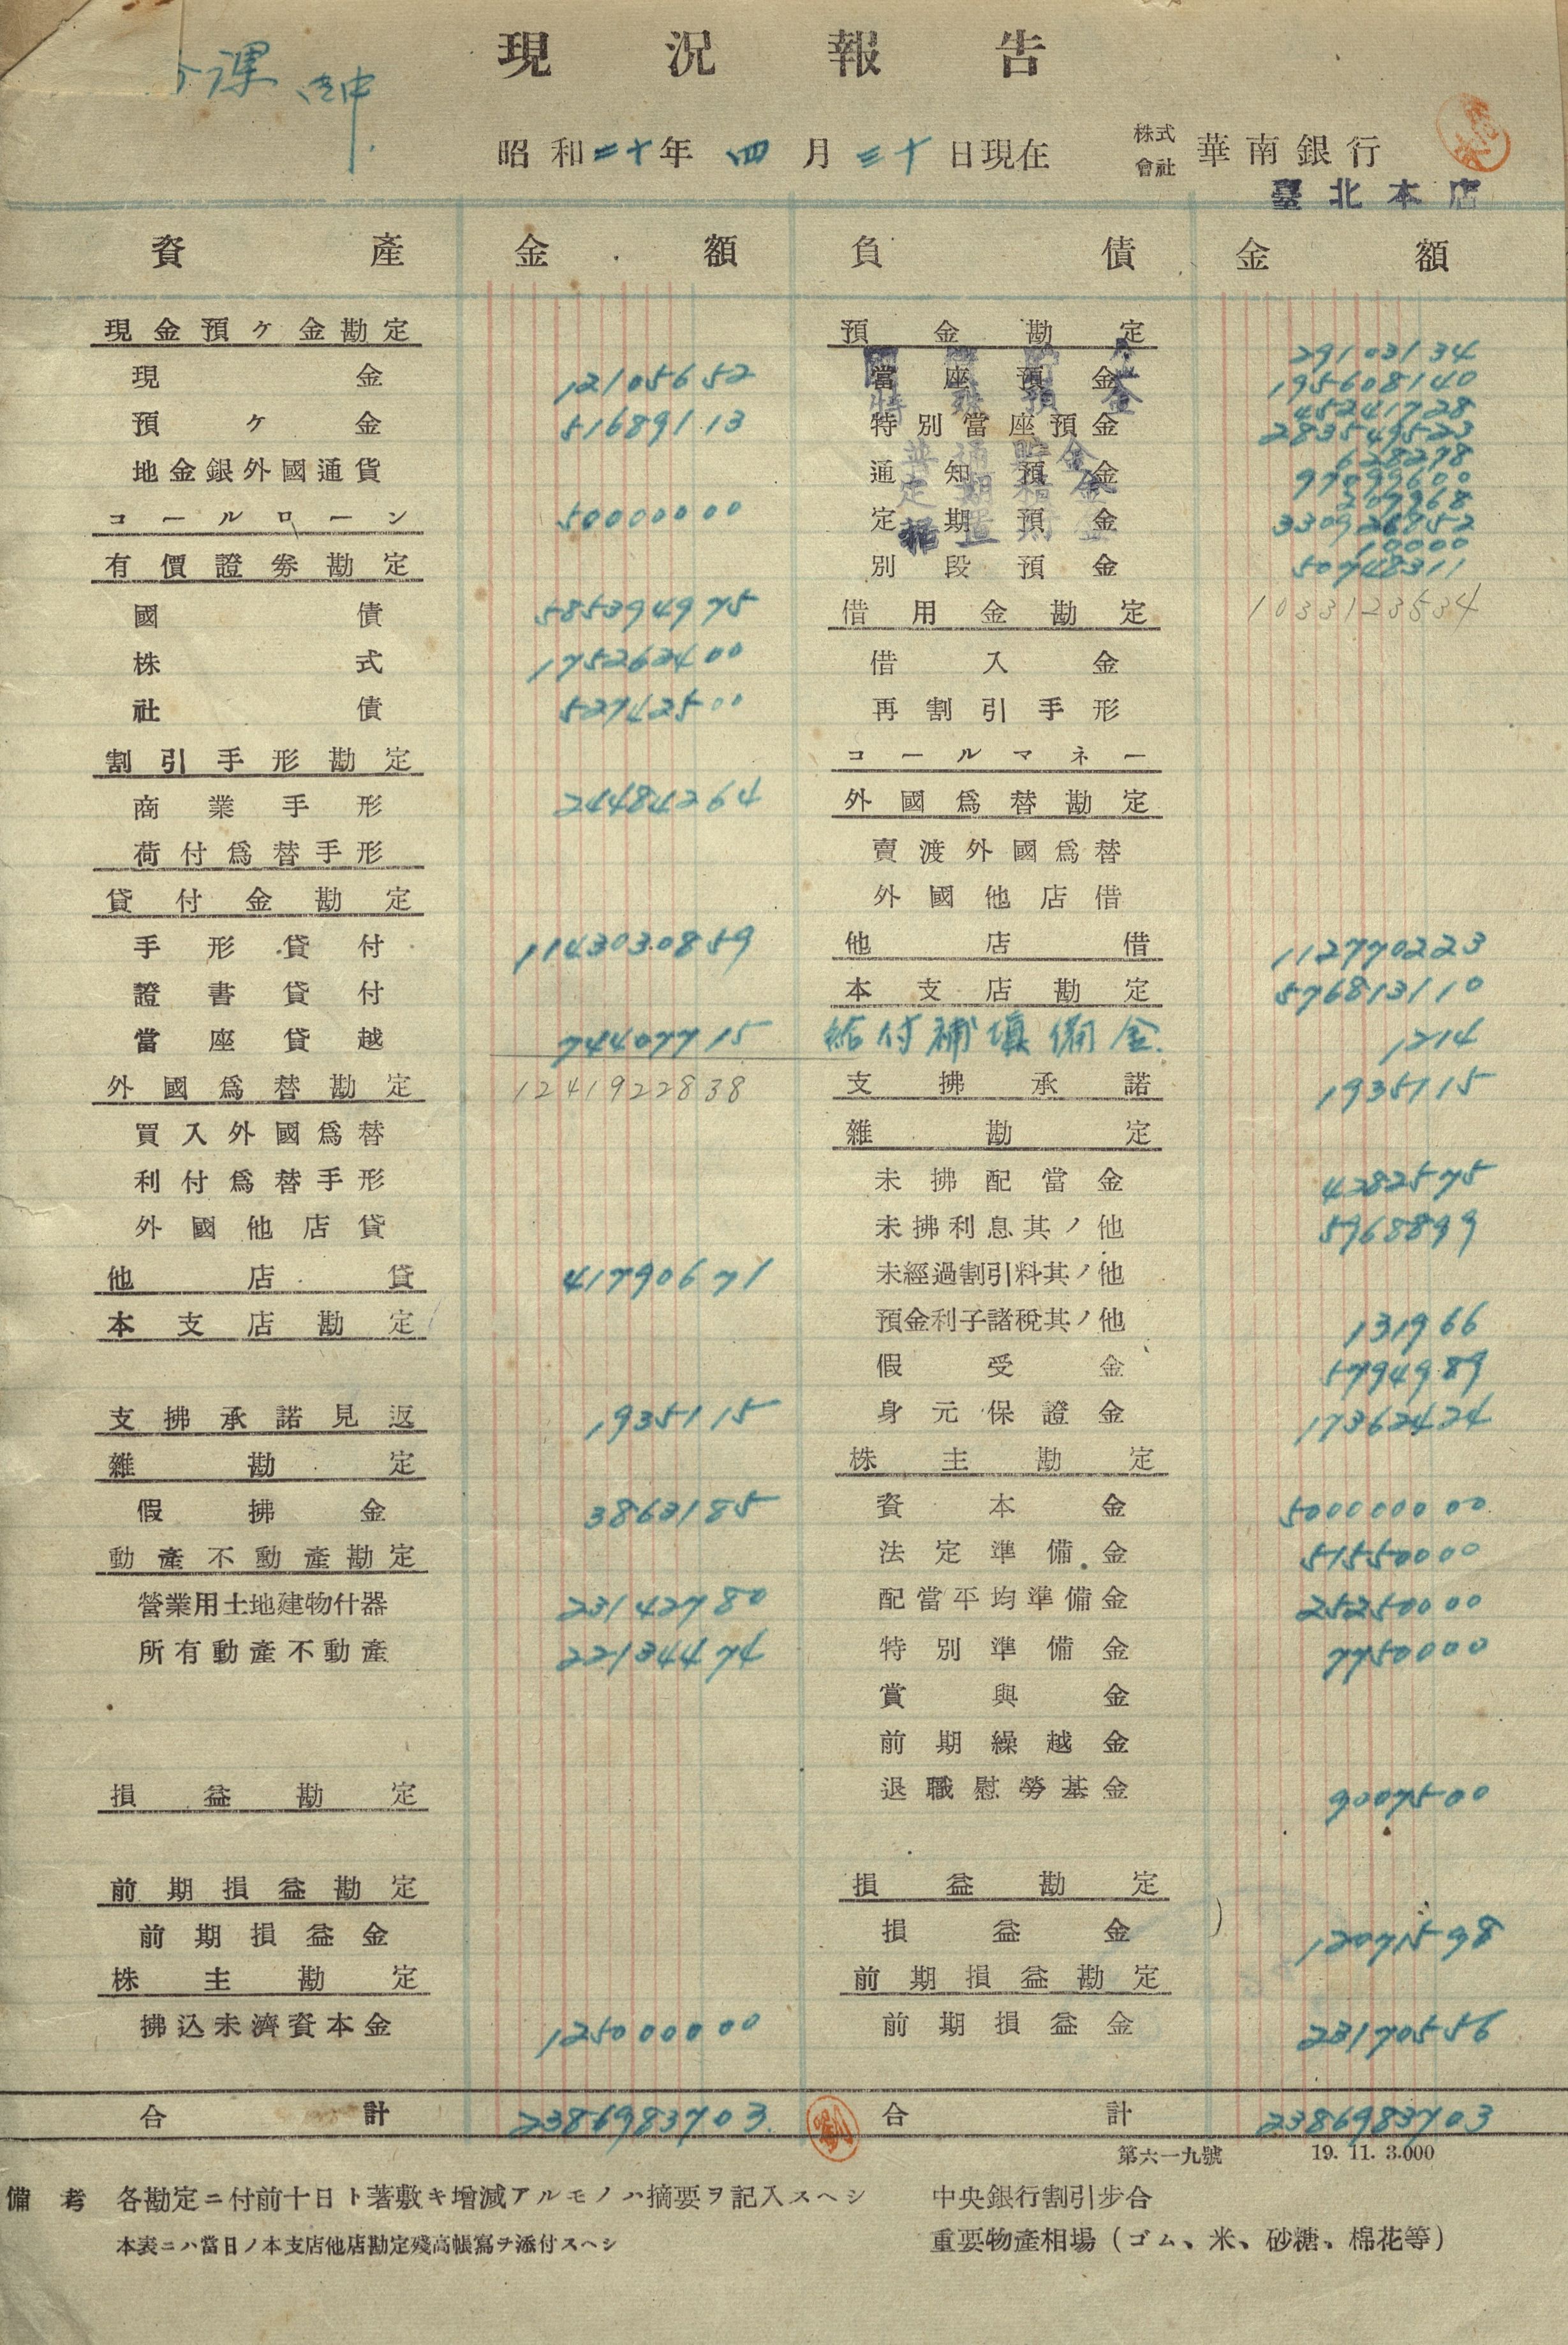 課 御中
現況報告
昭和二十年四月三十日現在 株式會社 華南銀行
臺北本店
資產 金額 負債 金額
現金預ケ金勘定 預金勘定 29103134
現金 12105652 當座預金 195608140
45241728
預ケ金 51689113 特別當座預金 283549523
628278
地金銀外國通貨 通知預金 97099600
209968
コールローン 50000000 定期預金 330926852
10000
有價證劵勘定 別段預金 50748311
國債 585394975 借用金勘定 1033123534
株式 175262400 借入金
社債 52742500 再割引手形
割引手形勘定 コールマネー
商業手形 24484264 外國爲替勘定
荷付爲替手形 賣渡外國爲替
貸付金勘定 外國他店借
手形貸付 1143030859 他店借 112770223
證書貸付 本支店勘定 576813110
當座貸越 74407715 給付補塡備金 1214
外國爲替勘定 1241922838 支拂承諾 1935115
買入外國爲替 雜勘定
利付爲替手形 未拂配當金 4282575
外國他店貸 未拂利息其ノ他 5968899
他店貸 41790671 未經過割引料其ノ他
本支店勘定 預金利子諸稅其ノ他 131966
假受金 5794989
支拂承諾見返 1935115 身元保證金 17362424
雜勘定 株主勘定
假拂金 3863185 資本金 500000000
動產不動產勘定 法定準備金 51550000
營業用土地建物什器 23142780 配當平均準備金 25250000
所有動產不動產 22134474 特別準備金 7750000
賞與金
前期繰越金
損益勘定 退職慰勞基金 9007500
前期損益勘定 損益勘定
前期損益金 損益金 12071598
株主勘定 前期損益勘定
拂込未濟資本金 125000000 前期損益金 23170556
合計 2386983703 劉 合計 2386983703
第六一九號 19. 11. 3.000
備考 各勘定ニ付前十日ト著敷キ增減アルモノハ摘要ヲ記入スヘシ 中央銀行割引步合
本表ニハ當日ノ本支店他店勘定殘高帳寫ヲ添付スヘシ 重要物產相場(ゴム、米、砂糖、棉花等)